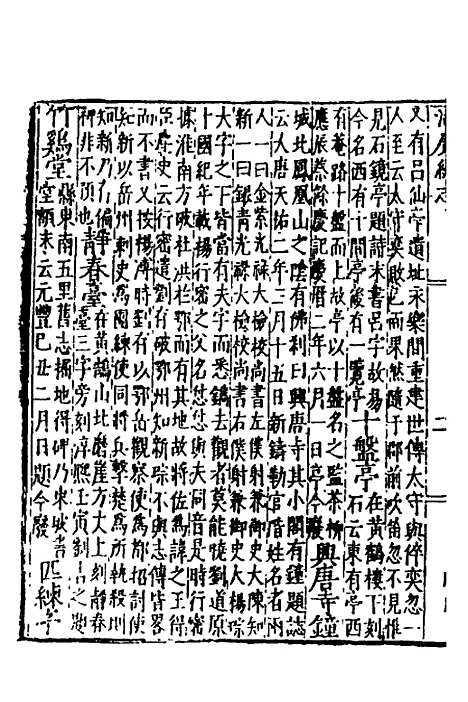 又有吕仙亭遗址永樂間重建世傳太守與倅奕忽一
人至云太守奕敗已而果然隨于郡前吹笛忽不見惟
見石鏡亭題詩末書吕字故易
今名西有十間亭後有一覽亭十盤亭在黄鶴樓下刻石云東有亭西
有菴路十盤而上故亭以十盤名之監茶柳
應辰蔡餘慶記慶曆二年六月一日亭今廢興唐寺鐘
城北鳳凰山之陰有佛利曰興唐寺其小閣有鐘題誌
云大唐天祐二年三月十五日新鑄勒官階姓名者兩
人一曰金紫光禄大檢校尚書左僕射兼御史大陳知
新一曰銀青光禄大檢校尚書右僕射兼御史人楊琮
大字之下皆當有夫字而悉鐫去觀者莫能曉劉道原
十國紀年載楊行密之父名怤怤與夫同音是時行密
據淮南方破杜洪於鄂而有其地故將佐為諱之王得
臣麈史云行密遣劉存破鄂州知新琮不與志傳皆畧
而不書又按楊溥時劉存以鄂岳觀察使為都招討使
知新以岳州刺史為團練使同將兵擊楚為所執殺則
知新乃
神非不預也青春臺在黄鶴山北磨崖方丈上刻青春臺三字旁刻淳熈壬寅
竹鷄堂縣東南五里舊志掘地得碑乃東坡書堂額末云元豐已丑二月日題今廢匹練亭